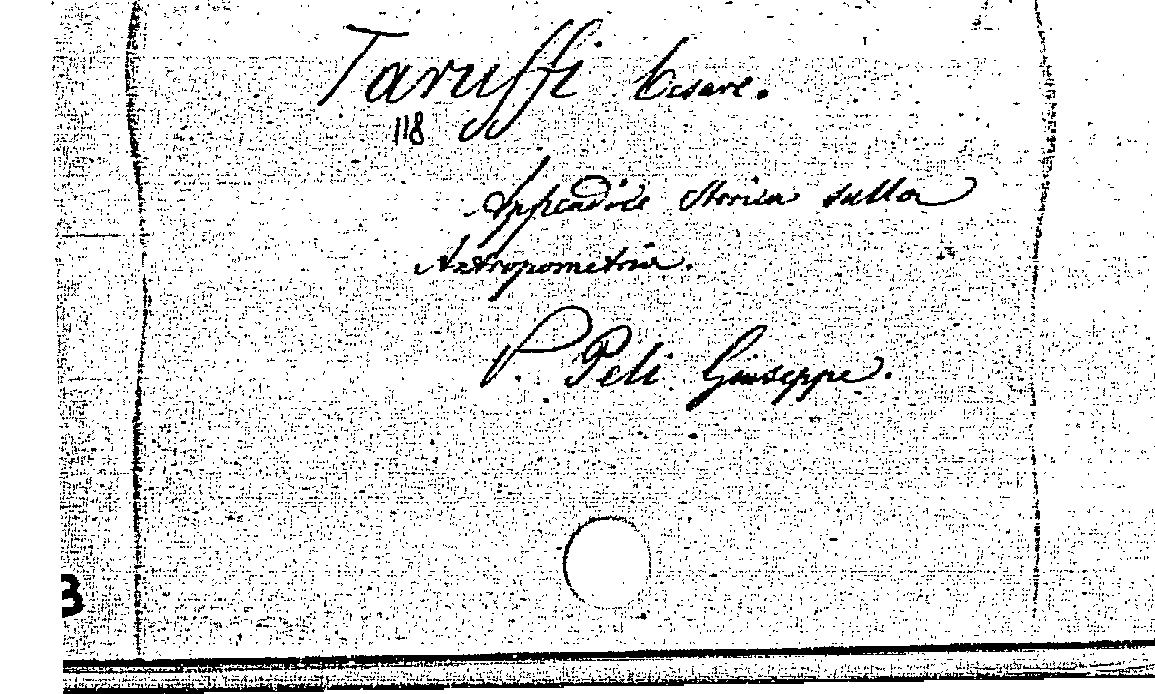 Taruffi Cesare.
118
Appendice Storica sulla
Antropometria.
V. Peli Giuseppe.
B